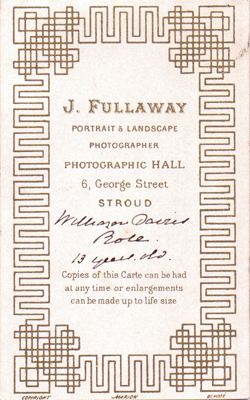 J. FULLAWAY
PORTRAIT & LANDSCAPE
PHOTOGRAPHER
PHOTOGRAPHIC HALL
6, George Street
STROUD
William Davis
Role.
13 years old.
Copies of this Carte can be had
at any time or enlargements
can be made up to life size
COPYRIGHT MARION